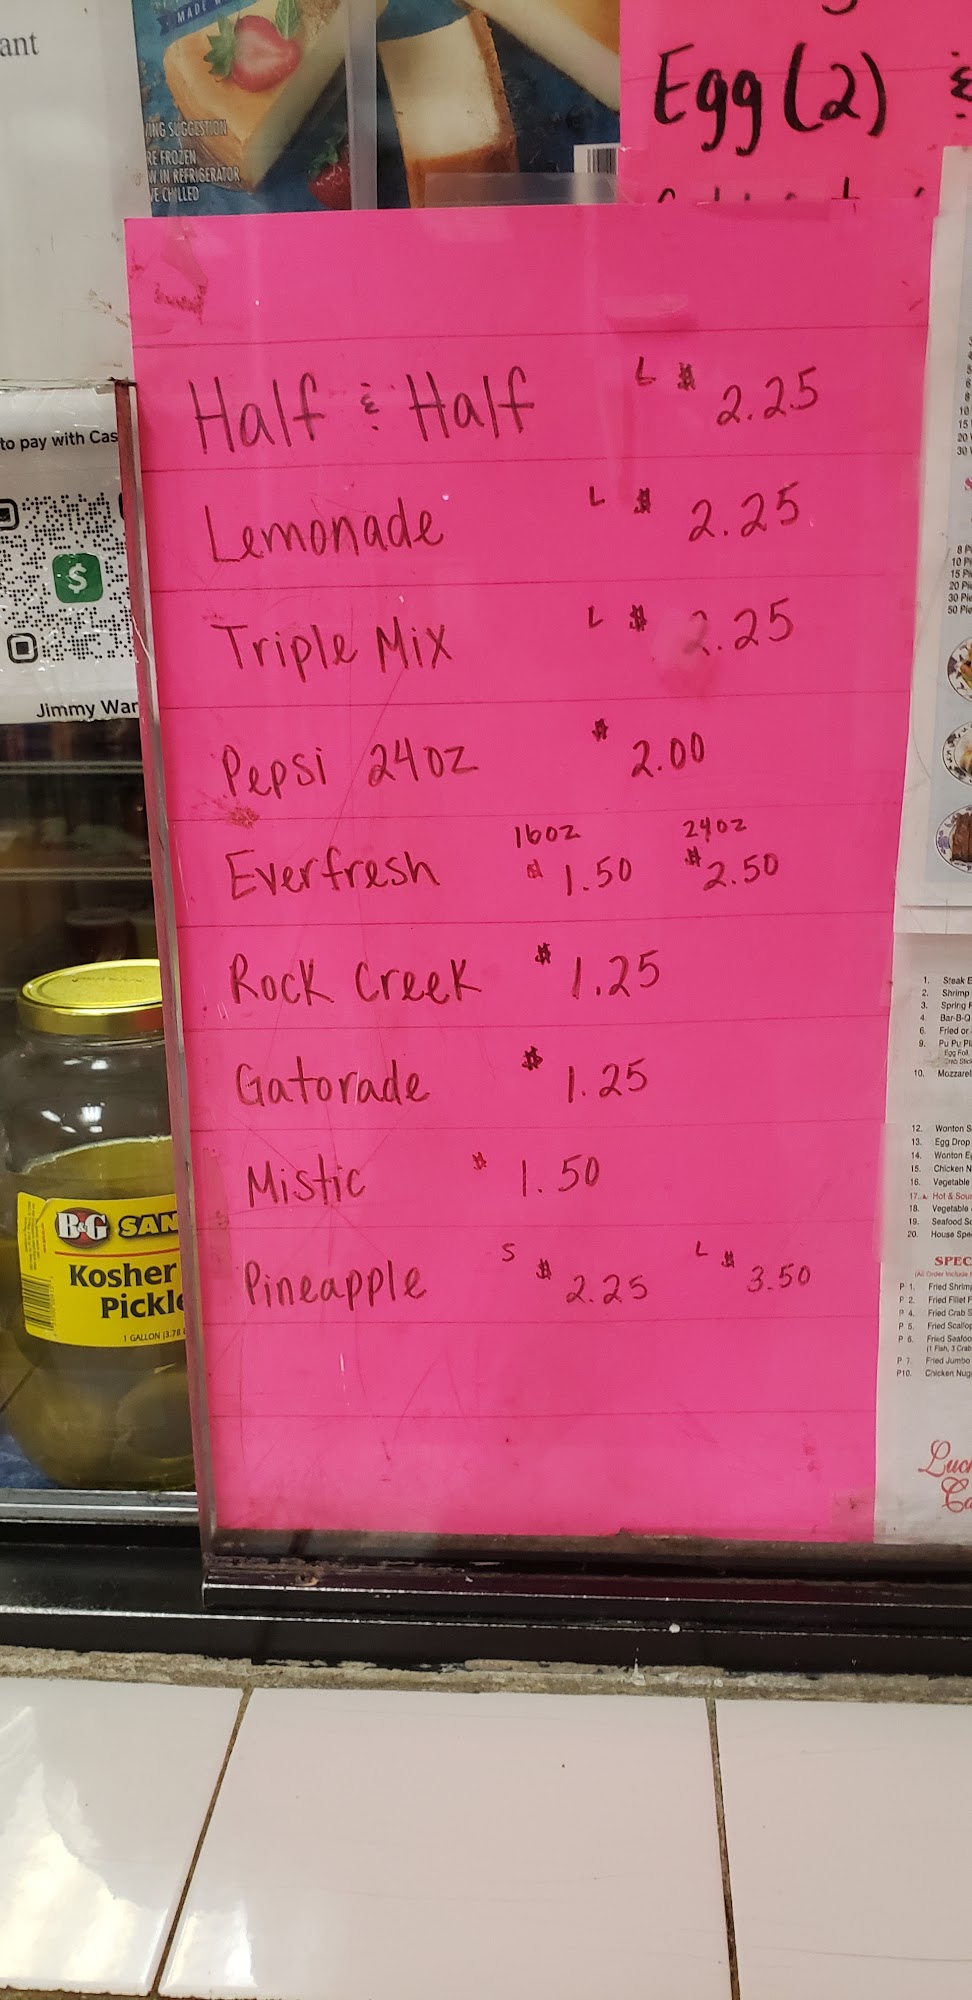 ant
MADE
ING SUGGESTION
RE FROZEN
W IN REFRIGERATOR
VE CHILLED
Egg (2) &
Half & Half L $ 2.25
Lemonade L $ 2.25
Triple Mix L $ 2.25
Pepsi 24oz $ 2.00
16oz 24oz
Everfresh $ 1.50 $ 2.50
Rock Creek $ 1.25
Gatorade $ 1.25
Mistic $ 1.50
Pineapple S $ 2.25 L $ 3.50
to pay with Cas
$
Jimmy War
B&G SAN
Kosher
Pickle
1 GALLON (3.78
10
15
20
30
8 Pi
10 Pi
15 Pie
20 Pie
30 Pie
50 Pie
1. Steak E
2. Shrimp
3. Spring F
4. Bar-B-Q
6. Fried or
9. Pu Pu Pl
Egg Roll,
Crab Stick
10. Mozzarel
12. Wonton S
13. Egg Drop
14. Wonton E
15. Chicken N
16. Vegetable
17. Hot & Sou
18. Vegetable
19. Seafood So
20. House Spe
SPEC
(All Order Include
P 1. Fried Shrimp
P 2. Fried Fillet F
P 4. Fried Crab S
P 5. Fried Scallop
P 6. Fried Seafoo
(1 Fish, 3 Crab
P 7. Fried Jumbo
P10. Chicken Nug
Luc
Ca